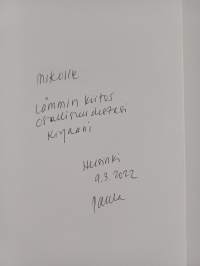 Mikolle
Lämmin kiitos
osallisuudestasi
kirjaani
Helsinki
9.3.2022